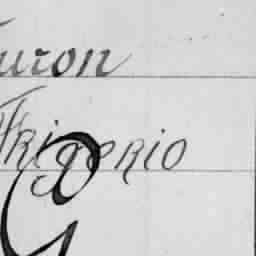 uron
Frigerio